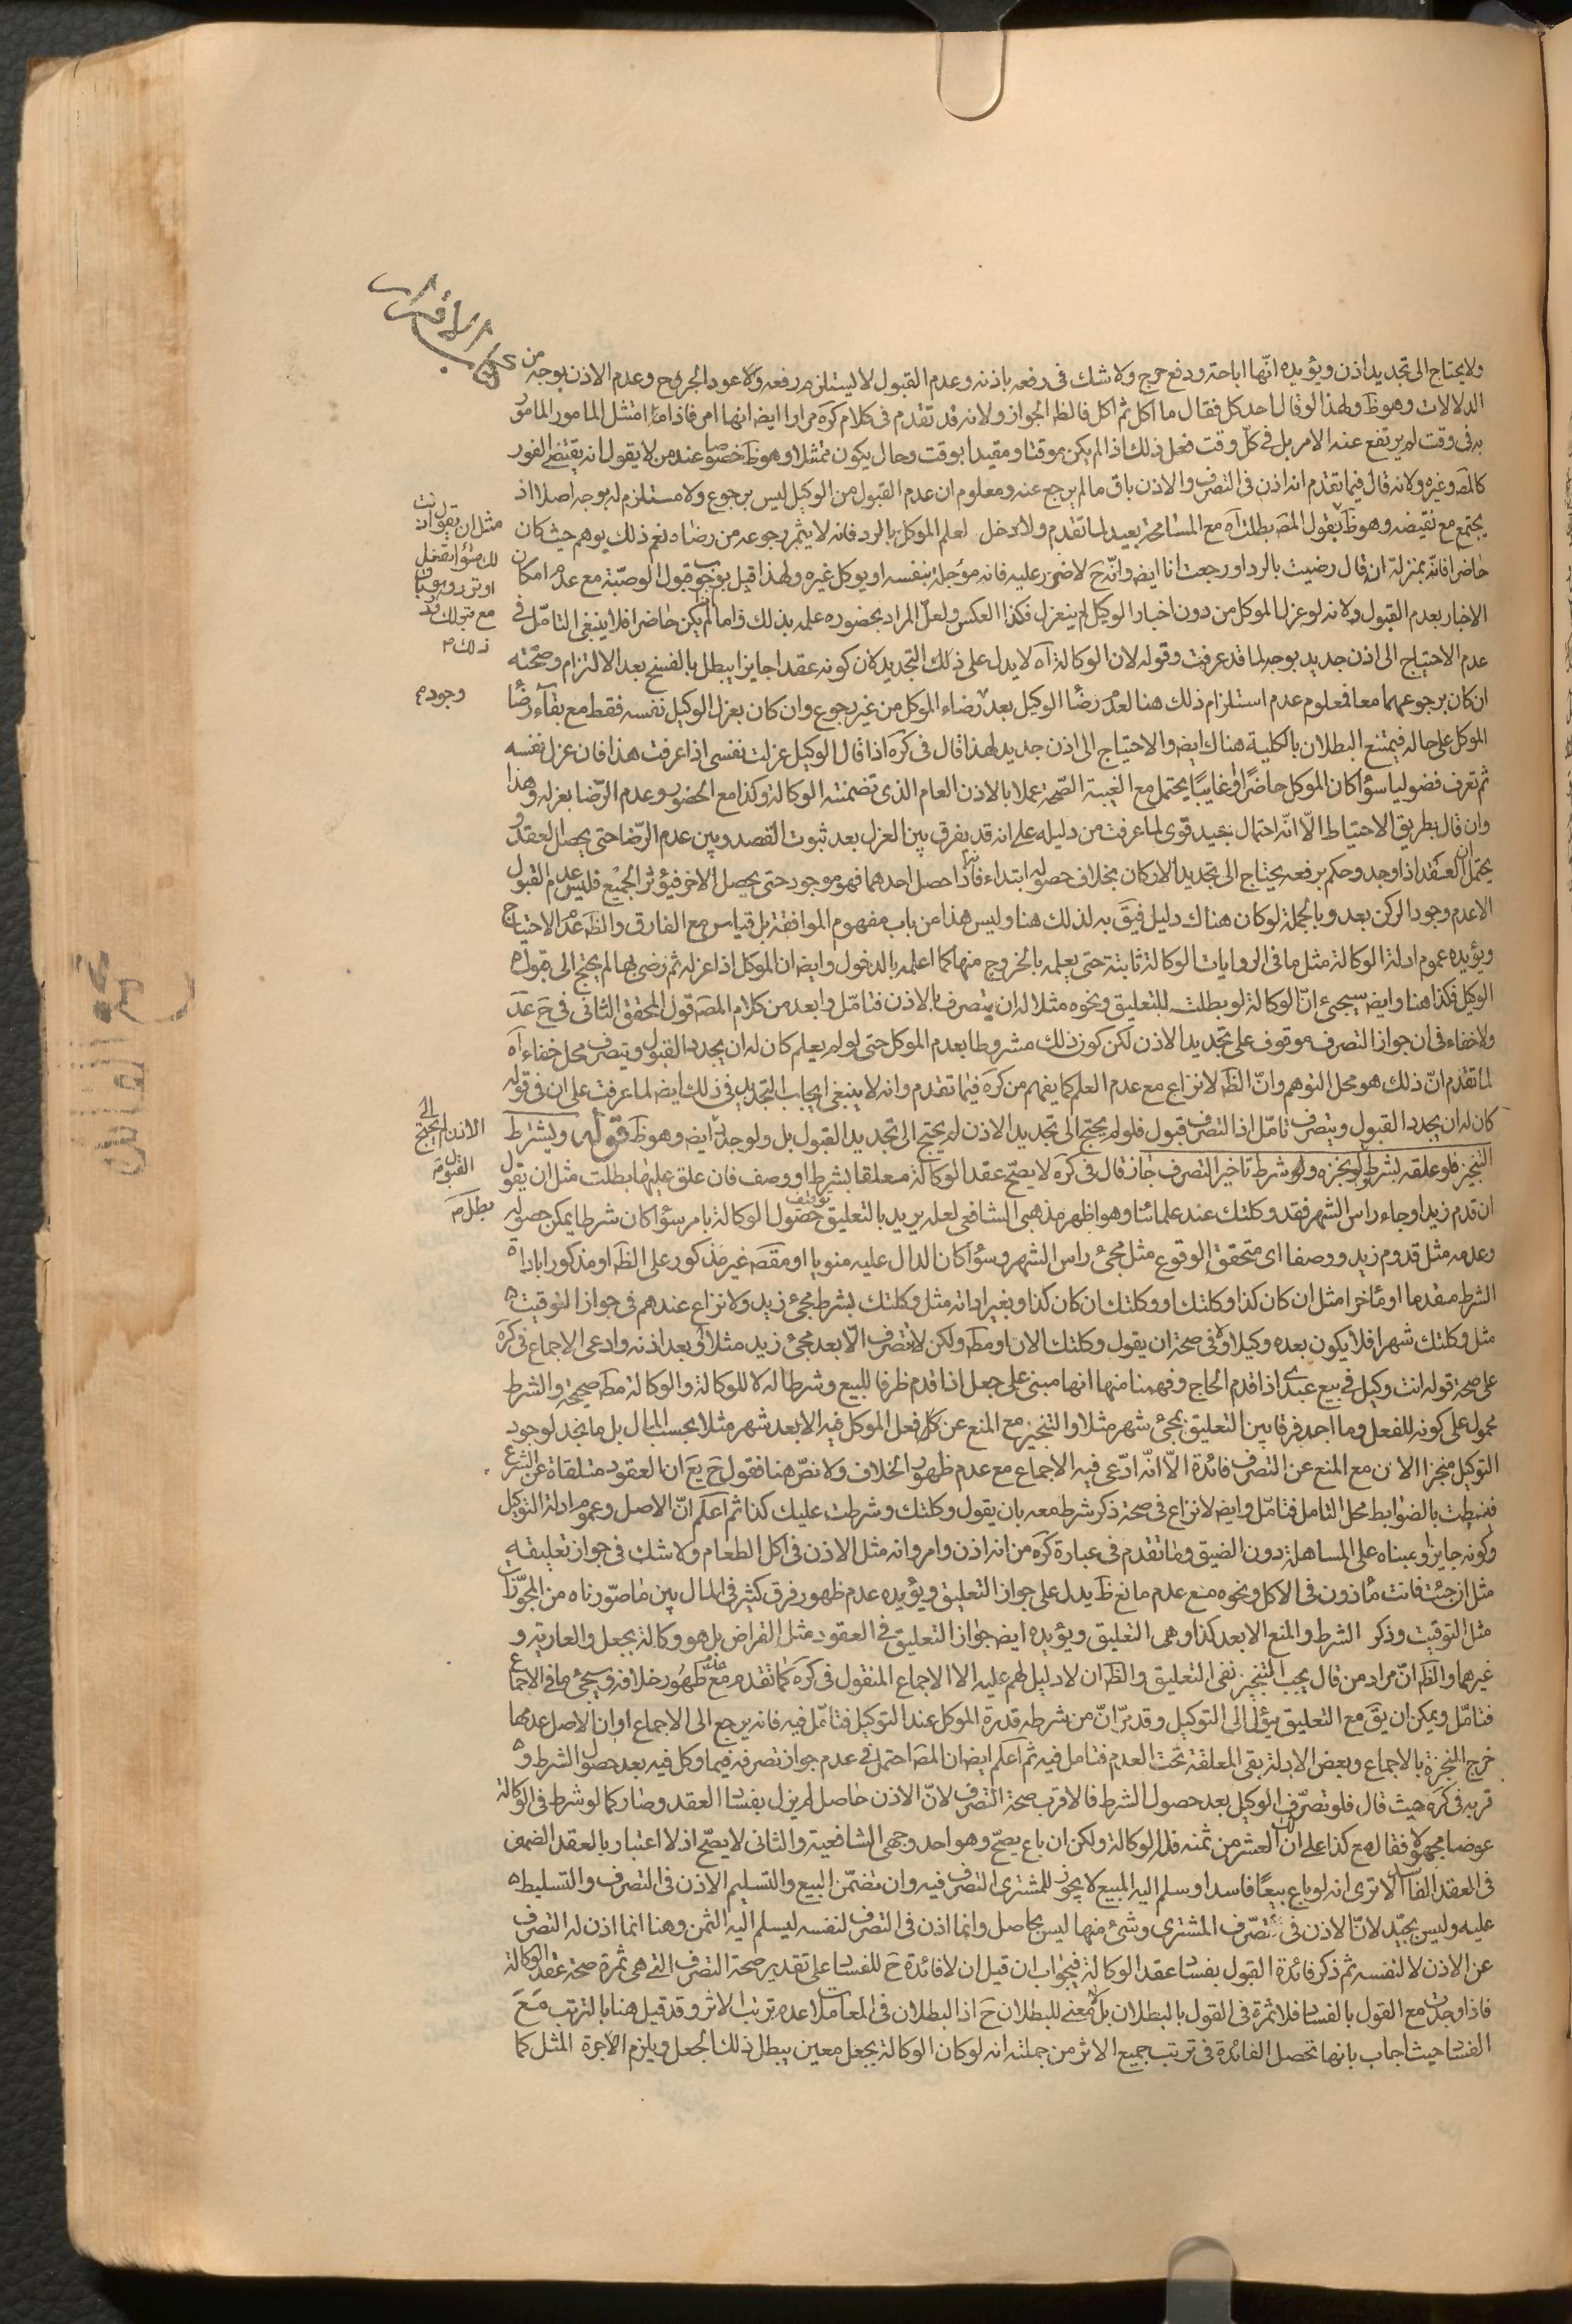 كتاب الإقرار
ولا يحتاج الى تجديد اذن ويؤيده انّها اباحة ودفع حرج ولا شك فى رفعه باذنه وعدم القبول لا يستلزم رفعه ولا عود الحرج وعدم الاذن بوجه من
الدلالات وهو ظ ولهذا لو قال احد كل فقال ما اكل ثم اكل فالظ الجواز ولانه قد تقدم فى كلام كره مرارا ايضا انها امر فاذا امتثل المامور المامور
به فى وقت لم يرتفع عنه الامر بل فى كل وقت فعل ذلك اذا لم يكن موقتا ومقيدا بوقت وحال يكون ممتثلا وهو ظ خصوصا عند من لا يقول انه يقتضى الفور
كالمص وغيره ولانه قال فيما تقدم انه اذن فى التصرف والاذن باق ما لم يرجع عنه ومعلوم ان عدم القبول من الوكيل ليس برجوع ولا مستلزم له بوجه اصلا اذ
يجتمع مع نقيضه وهو ظ فقول المص بطلت آه مع المسامحة بعيد لما تقدم ولا دخل لعلم الموكل بالرد فانه لا يثمر رجوعه من رضاه نعم ذلك يوهم حيث كان
حاضرا فانّه بمنزلة ان قال رضيت بالرد او رجعت انا ايض وانّه ح لا ضرر عليه فانه مؤجلة بنفسه او يوكل غيره ولهذا قيل بوجوب قبول الوصيّة مع عدم امكان
الاخبار بعدم القبول ولانه لو عزل الموكل من دون اخبار الوكيل لم ينعزل فكذا العكس ولعلّ المراد بحضوره علمه بذلك واما ان لم يكن حاضرا فلا ينبغى التامّل فى
عدم الاحتياج الى اذن جديد بوجه لما قد عرفت وقوله لان الوكالة آه لا يدل على ذلك التجديد لان كونه عقدا جايزا يبطل بالفسخ بعد الالتزام وصحّته
ان كان برجوعهما معا فمعلوم عدم استلزام ذلك هنا لعدم رضا الوكيل بعد رضاء الموكل من غير رجوع وان كان بعزل الوكيل نفسه فقط مع بقآء رضا
الموكل على حاله فيمتنع البطلان بالكلية هناك ايض والاحتياج الى اذن جديد لهذا قال فى كره اذا قال الوكيل عزلت نفسى اذا عرفت هذا فان عزل نفسه
ثم تعرف فضوليا سؤا كان الموكل حاضرًا او غايبًا يحتمل مع الغيبة الصحّة عملا بالاذن العام الذى تضمنته الوكالة وكذا مع الحضور وعدم الرّضا بعزله وهذا
وان قال بطريق الاحتياط الّا انّه احتمال بجيد قوى لما عرفت من دليله على انه قد يفرق بين العزل بعد ثبوت القصد وبين عدم الرّضا حتى يحصل العقد و
يحتمل ان العقد اذا وجد وحكم برفعه يحتاج الى تجديد الاركان بخلاف حصوله ابتداء فانّه اذا حصل احدهما فهو موجود حتى يحصل الاخر فيؤثر الجميع فليس عدم القبول
الا عدم وجود الركن بعد وبالجملة لو كان هناك دليل فيق به لذلك هنا وليس هذا من باب مفهوم الموافقة بل قياس مع الفارق والظ عدم الاحتياج
ويؤيده عموم ادلة الوكالة مثل ما فى الروايات الوكالة ثابتة حتى يعلمه بالخروج منها كما اعلمه بالدخول وايض ان الموكل اذا عزله ثم رضى بها لم يحتج الى قبوله
الوكيل فكذا هنا وايض سيجئ انّ الوكالة لو بطلت للتعليق ونحوه مثلا له ان يتصرف بالاذن فتامّل وابعد من كلام المص قول المحقق الثانى فى ح عد
ولا خفاء فى ان جواز التصرف موقوف على تجديد الاذن لكن كون ذلك مشروطا بعدم الموكل حتى لو لم يعلم كان له ان يجدد القبول ويتصرف محل خفاء آه
لما تقدم انّ ذلك هو محل التوهم وانّ الظ لا نزاع مع عدم العلم كما يفهم من كره فيما تقدم وانه لا ينبغى ايجاب التجديد فى ذلك ايض لما عرفت على ان فى قوله
كان له ان يجدد القبول ويتصرف تامّل اذ التصرف قبول فلو لم يحتج الى تجديد الاذن لم يحتج الى تجديد القبول بل ولو جدد ايض وهو ظ قوله ويشترط
التنجيز فلو علقه بشرط لم يجز ولو شرط تاخير التصرف جاز قال فى كره لا يصحّ عقد الوكالة معلقا بشرط او وصف فان علق عليهما بطلت مثل ان يقول
ان قدم زيد او جاء راس الشهر فقد وكلتك عند علمائنا وهو اظهر مذهبى الشافعى لعله يريد بالتعليق توقف حصول الوكالة بامر سؤا كان شرطا يمكن حصوله
وعدمه مثل قدوم زيد ووصفا اى متحقق الوقوع مثل مجئ راس الشهر وسؤا كان الدال عليه منويا او مقصد غير مذكور على الظ او مذكورا باداة
الشرط مقدما او مؤخرا مثل ان كان كذا وكلتك او وكلتك ان كان كذا وبغير اداته مثل وكلتك بشرط مجئ زيد ولا نزاع عندهم فى جواز التوقيت
مثل وكلتك شهرا فلا يكون بعده وكيلا ولا فى صحة ان يقول وكلتك الان او مط ولكن لا تتصرف الّا بعد مجئ زيد مثلا او بعد اذنه وادعى الاجماع فى كره
على صحة قوله انت وكيل فى بيع عبدى اذا قدم الحاج وفهمنا منها انها مبنى على جعل اذا قدم ظرفا للبيع وشرطا له لا للوكالة والوكالة مط صحيحة والشرط
محمول على كونه للفعل وما اجد فرقا بين التعليق بمجئ شهر مثلا والتنجيز مع المنع عن كل فعل الموكل فيه الا بعد شهر مثلا بحسب المال بل ما نجد لوجود
التوكيل منجزا الان مع المنع عن التصرف فائدة الّا انّه ادّعى فيه الاجماع مع عدم ظهور الخلاف ولا نصّ هنا فقول ح يع ان العقود متلقاة عن الشرع
فنيطت بالضوابط محل التامل فتامّل وايض لا نزاع فى صحة ذكر شرط معه بان يقول وكلتك وشرطت عليك كذا ثم اعلم انّ الاصل وعموم ادلة التوكيل
وكونه جايزا ومبناه على المساهلة دون الضيق وما تقدم فى عبارة كره من انه اذن وامر وانه مثل الاذن فى اكل الطعام ولا شك فى جواز تعليقه
مثل ان جئت فانت مأذون فى الاكل ونحوه مع عدم مانع ظ يدل على جواز التعليق ويؤيده عدم ظهور فرق كثير فى المال بين ما صوّرناه من المجوّزات
مثل التوقيت وذكر الشرط والمنع الا بعد كذا وهى التعليق ويؤيده ايض جواز التعليق فى العقود مثل القراض بل هو وكالة بجعل والعارية و
غيرهما والظ انّ مراد من قال يجب التنجيز نفى التعليق والظ ان لا دليل لهم عليه الا الاجماع المنقول فى كره كما تقدم مع عدم ظهور خلافه وسيجئ ما فى الاجماع
فتامّل ويمكن ان يق مع التعليق يؤل الى التوكيل وقد مرّ انّ من شرطه قدرة الموكل عند التوكيل فتامّل فيه فانه يرجع الى الاجماع او ان الاصل عدمها
خرج المنجزة بالاجماع وبعض الادلة بقى المعلقة تحت العدم فتامل فيه ثم اعلم ايض ان المص احتمل فى عدم جواز تصرفه فيما وكل فيه بعد حصول الشرط و
قربه فى كره حيث قال فلو تصرّف الوكيل بعد حصول الشرط فالاقرب صحة التصرف لانّ الاذن حاصل لم يزل بفساد العقد وصار كما لو شرط فى الوكالة
عوضا مجهولا فقال بع كذا على ان لك العشر من ثمنه فسد الوكالة ولكن ان باع يصحّ وهو احد وجهى الشافعية والثانى لا يصحّ اذ لا اعتبار بالعقد الضمنى
فى العقد الفاسد الا ترى انه لو باع بيعًا فاسدا وسلم اليه المبيع لا يجوز للمشترى التصرف فيه وان تضمّن البيع والتسليم الاذن فى التصرف والتسليط
عليه وليس بجيّد لانّ الاذن فى تصرّف المشترى وشئ منها ليس بحاصل وانما اذن فى التصرف لنفسه ليسلم اليه الثمن وهنا انما اذن له التصرف
عن الاذن لا لنفسه ثم ذكر فائدة القول بفساد عقد الوكالة فيجواب ان قيل ان لا فائدة ح للفساد على تقدير صحة التصرف التى هى ثمرة صحة عقد الوكالة
فاذا وجدت مع القول بالفساد فلا ثمرة فى القول بالبطلان بل لا معنى للبطلان ح اذ البطلان فى المعاملات عدم ترتب الاثر وقد قيل هنا بالترتب مع
الفساد حيث اجاب بانها تحصل الفائدة فى ترتب جميع الاثر من جملته انه لو كان الوكالة بجعل معين يبطل ذلك الجعل ويلزم الاجرة المثل كما
وجوده